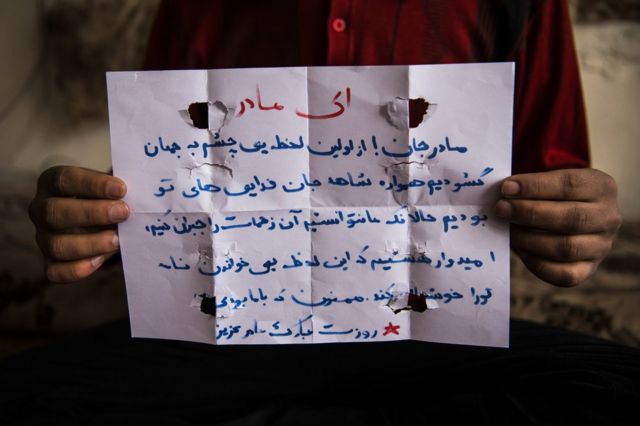 ای مادر
مادر جان! از اولین لحظه یی چشم به جهان
گشودیم همواره شاهد جان فدایی های تو
بودیم حالا که ما نتوانستیم آن زحمات را جبران کنیم،
امیدوار هستیم که این لحظه یی خواندن نامه
تورا کند. ممنون که بابا
روزت مبارک مادر عزیز